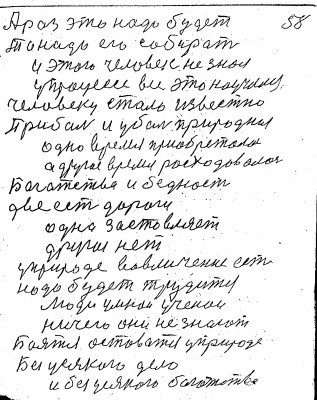 А раз это надо будет 58
То надо его собират
и этого человек не знал
упроцессе все это научился
человеку стало известно
Прибыл и убыл природная
одно время приобретала
а другая время росходовалос
Богатства и бедност
две ест дороги
одна заставляет
другая нет
уприроде вовличение ест
надо будет трудится
Люди умной ученои
ничего они не знают
Боятся остоватся уприроде
Без усякого дело
и без усякого богатства